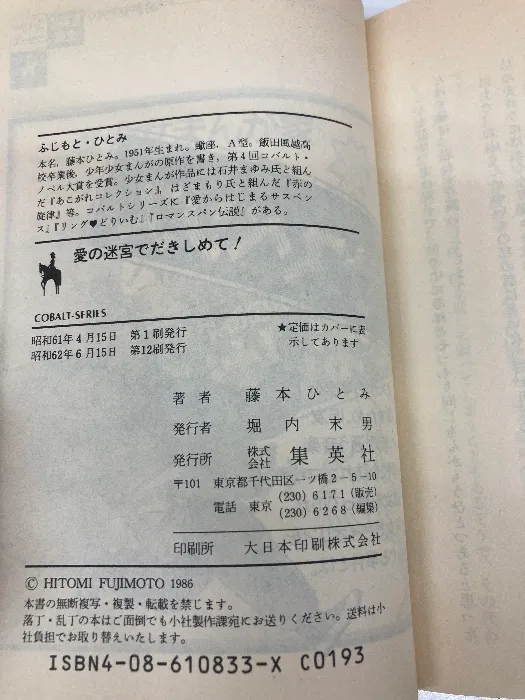 ふじもと・ひとみ
本名、藤本ひとみ。1951年生まれ。蠍座、A型。飯田風越高
校卒業後、少年少女まんがの原作を書き、第4回コバルト・
ノベル大賞を受賞。少女まんが作品には石井まゆみ氏と組ん
だ『あこがれコレクション』、はざまもり氏と組んだ『赤の
旋律』等。コバルトシリーズに『愛からはじまるサスペン
ス』『リング♥どりいむ』『ロマンスパン伝説』がある。
愛の迷宮でだきしめて!
COBALT-SERIES
昭和61年4月15日 第1刷発行
昭和62年6月15日 第12刷発行
★定価はカバーに表
示してあります
著者 藤本ひとみ
発行者 堀内末男
発行所 株式会社 集英社
〒101 東京都千代田区一ツ橋2-5-10
電話 東京 (230)6171(販売)
(230)6268(編集)
印刷所 大日本印刷株式会社
© HITOMI FUJIMOTO 1986
本書の無断複写・複製・転載を禁じます。
落丁・乱丁の本はご面倒でも小社製作課宛にお送りください。送料は小
社負担でお取り替えいたします。
ISBN4-08-610833-X C0193